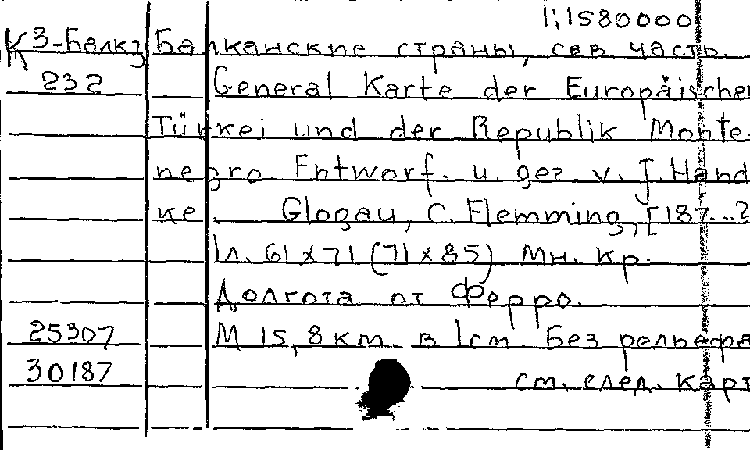 1:1580000
К3-Балк3 Балканские страны, сев часть
232 General Karte der Europäischen
Türkei und der Republik Monte-
negro. Entworf. u. gez. v. J. Hand
ke. Glogau, C. Flemming, [187...?
1л. 61x71 (71x85) Мн. кр.
Долгота от Ферро.
25307 М 15,8 км в 1 см. Без рельефа
30187 см. след. карт